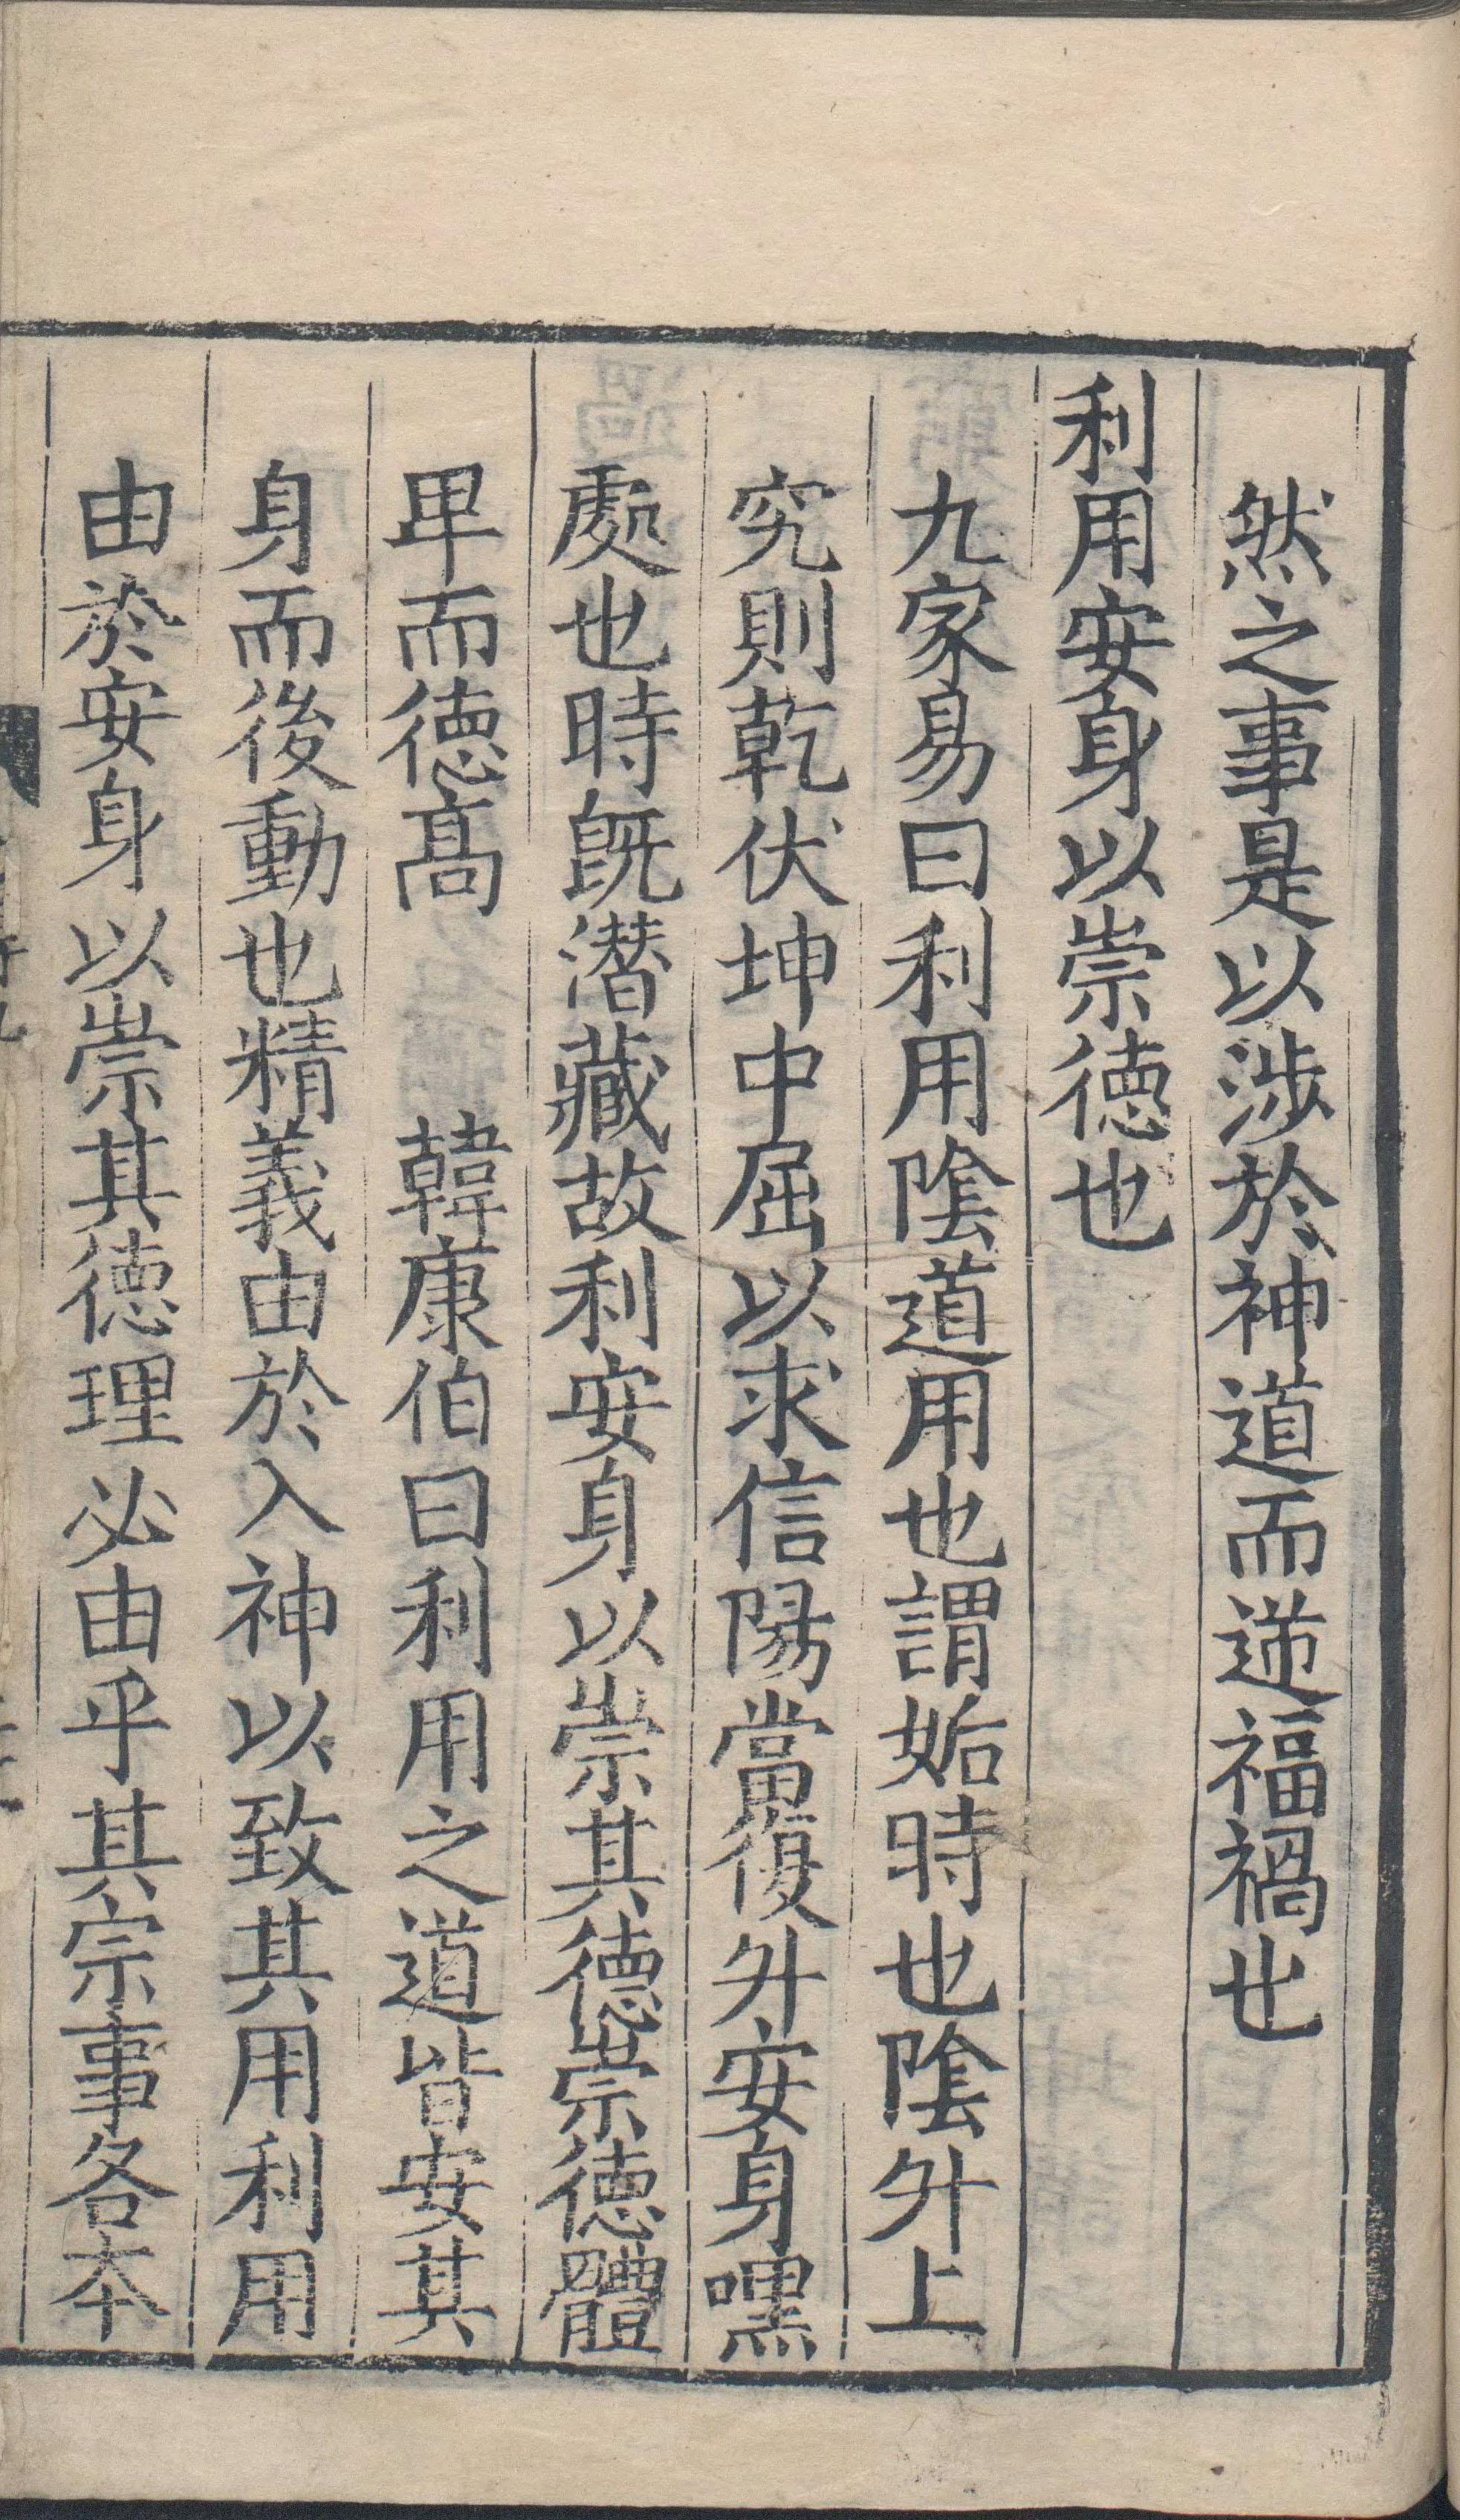 然之事是以涉於神道而逆福禍也
利用安身以崇德也
九家易曰利用隂道用也謂姤時也隂升上
究則乾伏坤中屈以求信陽當復升安身嘿
處也時旣潛藏故利安身以崇其德崇德體
卑而德髙　韓康伯曰利用之道皆安其
身而後動也精義由於入神以致其用利用
由於安身以崇其德理必由乎其宗事各本